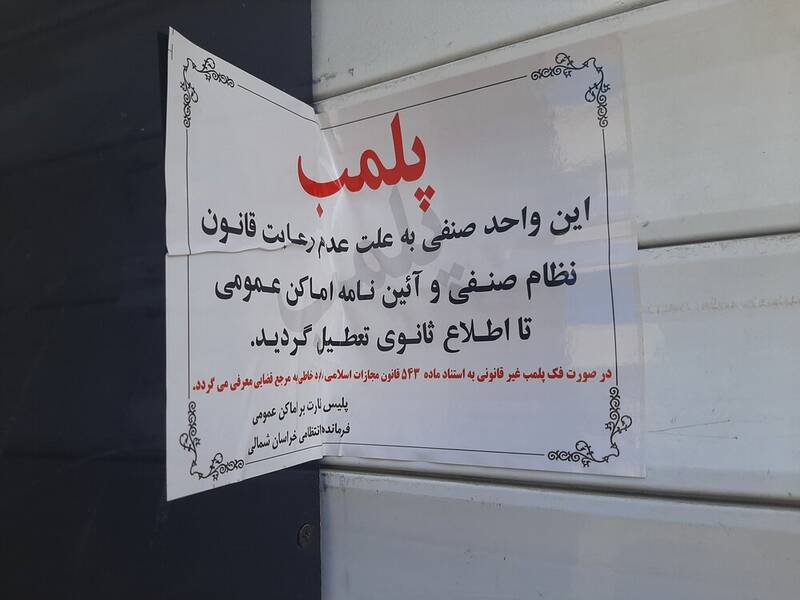 پلمب
این واحد صنفی به علت عدم رعایت قانون
نظام صنفی و آئین نامه اماکن عمومی
تا اطلاع ثانوی تعطیل گردید.
در صورت فک پلمب غیر قانونی به استناد ماده ۵۴۳ قانون مجازات اسلامی خاطی به مرجع قضایی معرفی می گردد.
پلیس نظارت بر اماکن عمومی
فرمانده انتظامی خراسان شمالی